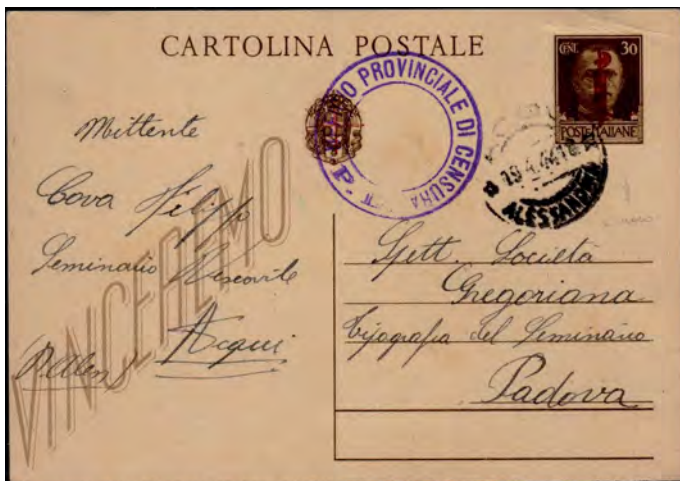 CARTOLINA POSTALE
CENT. 30
POSTE ITALIANE
PROVINCIALE DI CENSURA
P.
19.4.44
ALESSANDRIA
Mittente
Cova Filippo
Seminario Vescovile
Acqui
VINCEREMO
Spett. Società
Gregoriana
Tipografia del Seminario
Padova